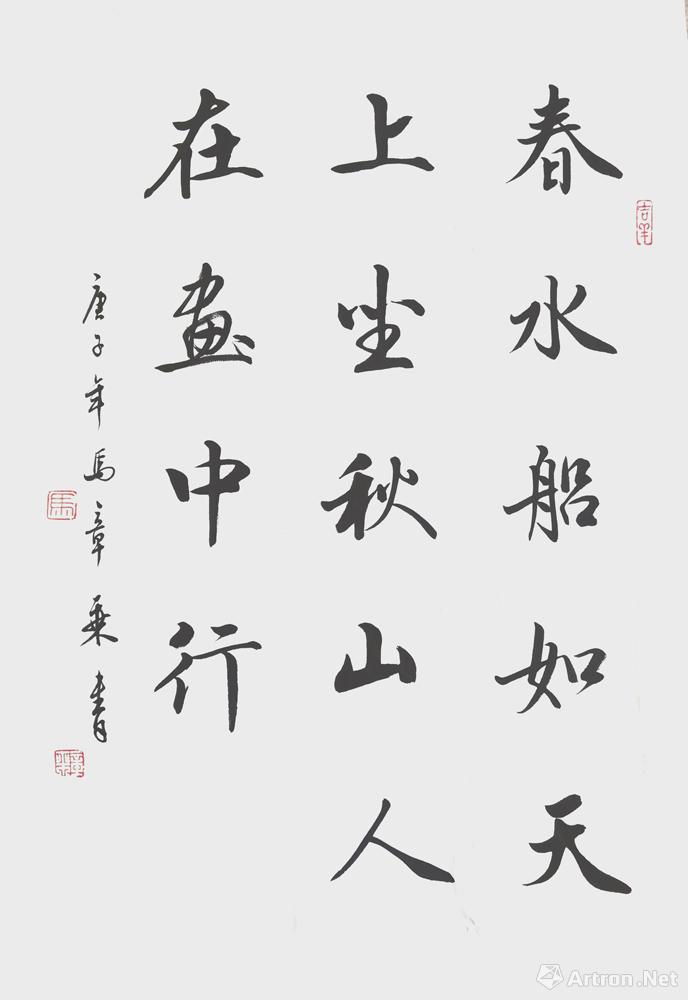 春水船如天
上坐秋山人
在畫中行
庚子年馬章乘書
馬
Artron.Net